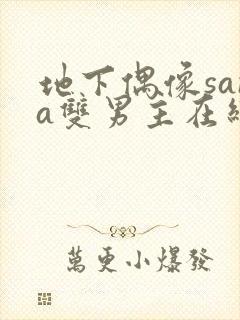 地下偶像sa
a雙男主在
萬更小爆發